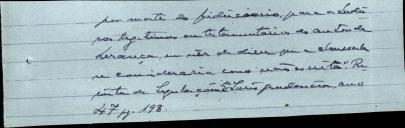 por morte do fiduciario, para os herdei
ros legitimos ou testamentarios do autor da
herança, em vez de dizer que a clausula
se consideraria como não escrita". Re
vista de Legislação e Jurisprudencia, ano
47 pg. 198.